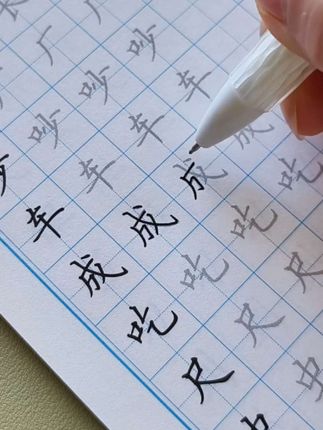 厂厂
吵吵吵吵
车车车车
成成成成
吃吃吃吃
尺尺尺